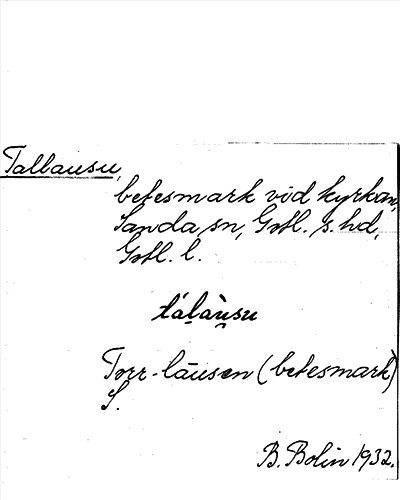 Tallausu,
betesmark vid kyrkan,
Sanda sn, Gotl. s. hd,
Gotl. l.
táḷaù̯su
Torr-läusen (betesmark)
S.
B. Bolin 1932.